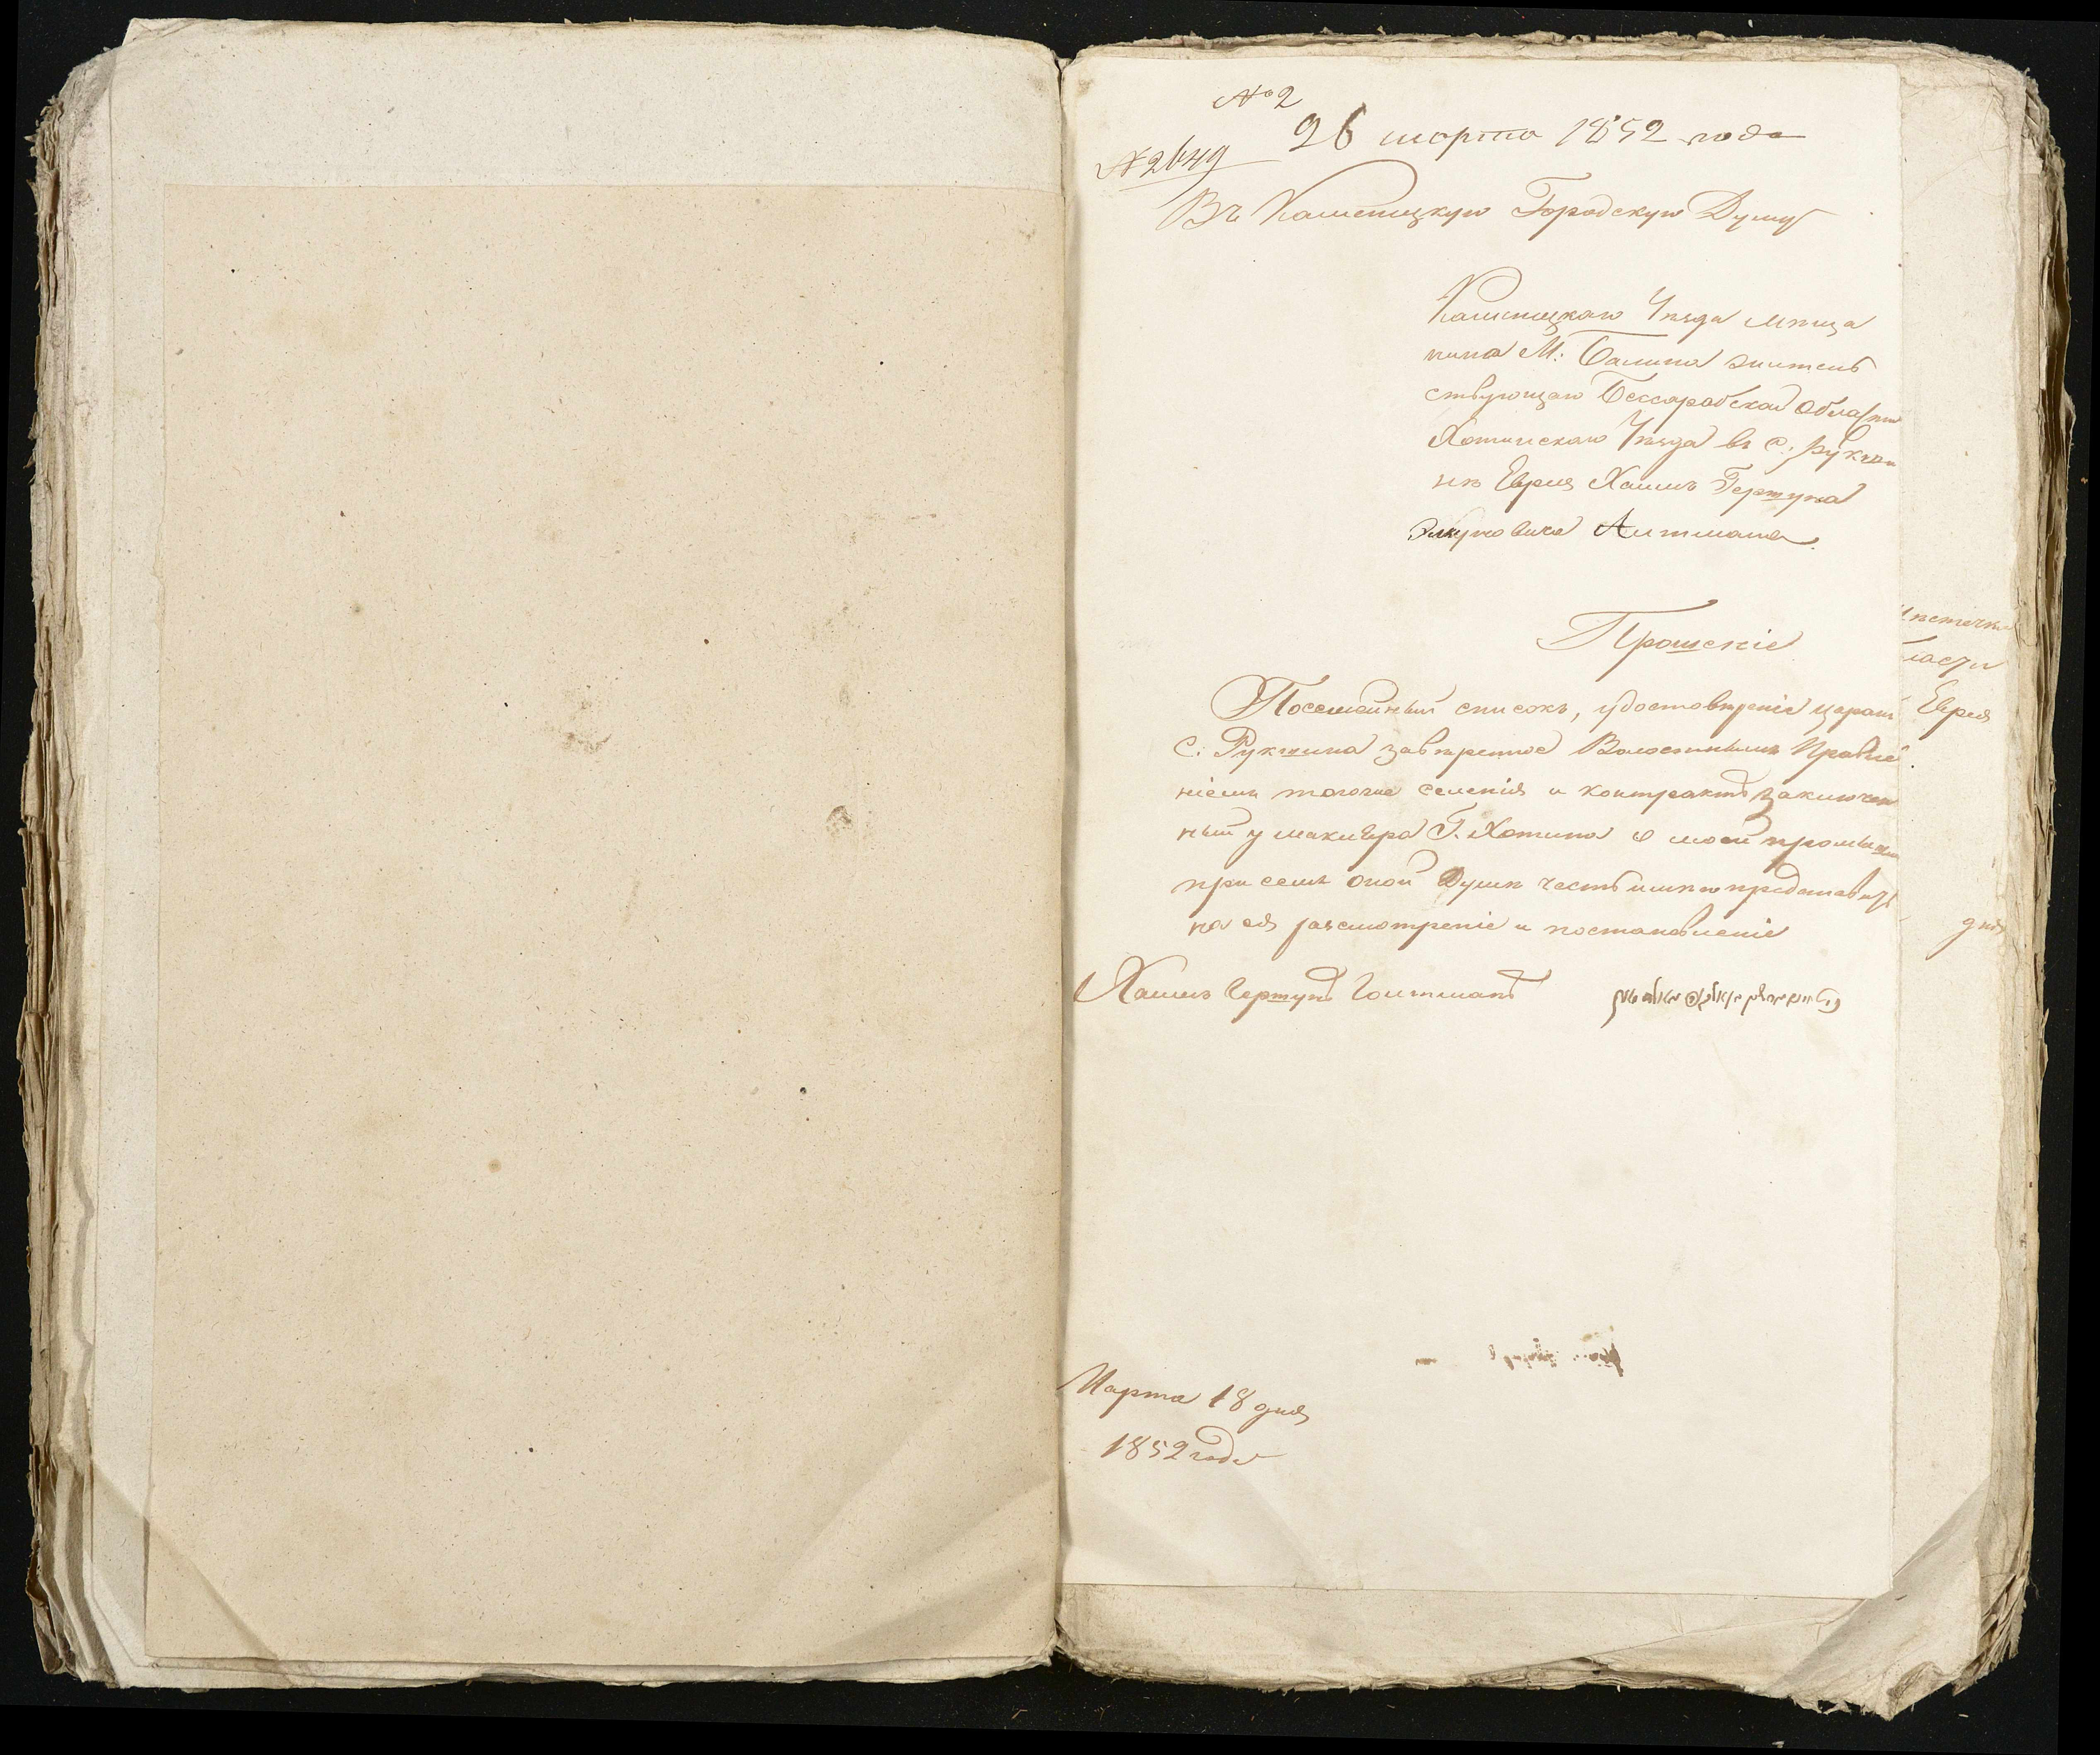 № 2
26 марта 1852 года
№ 2649
Въ Каменецкую Городскую Думу
Каменецкаго Уезда мѣща
нина М: Балина жител
ствующаго Бессарабской Области
Хотинскаго Уезда въ с: Рукши
нѣ Еврея Хаимъ Гершуна
Элкуновича
Прошеніе
Посемейный списокъ, удостовереніе царанъ
с: Рукшина заверенное Волостнымъ Правле
ніемъ тогоже селенія и контрактъ заключен
ный у маклера Г. Хотина о моей
при семъ оной Думѣ честь имею представить
на ея разсмотреніе и постановленіе
Хаимъ Гершунъ
Марта 18 дня
1852 года
ласти
Еврея
дня